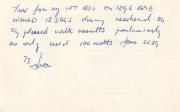 for my 1st QSO on 1296 and
worked 13 SKGs during weekend so
pleased with results particularly
as only used 100 watts from 2C39
73